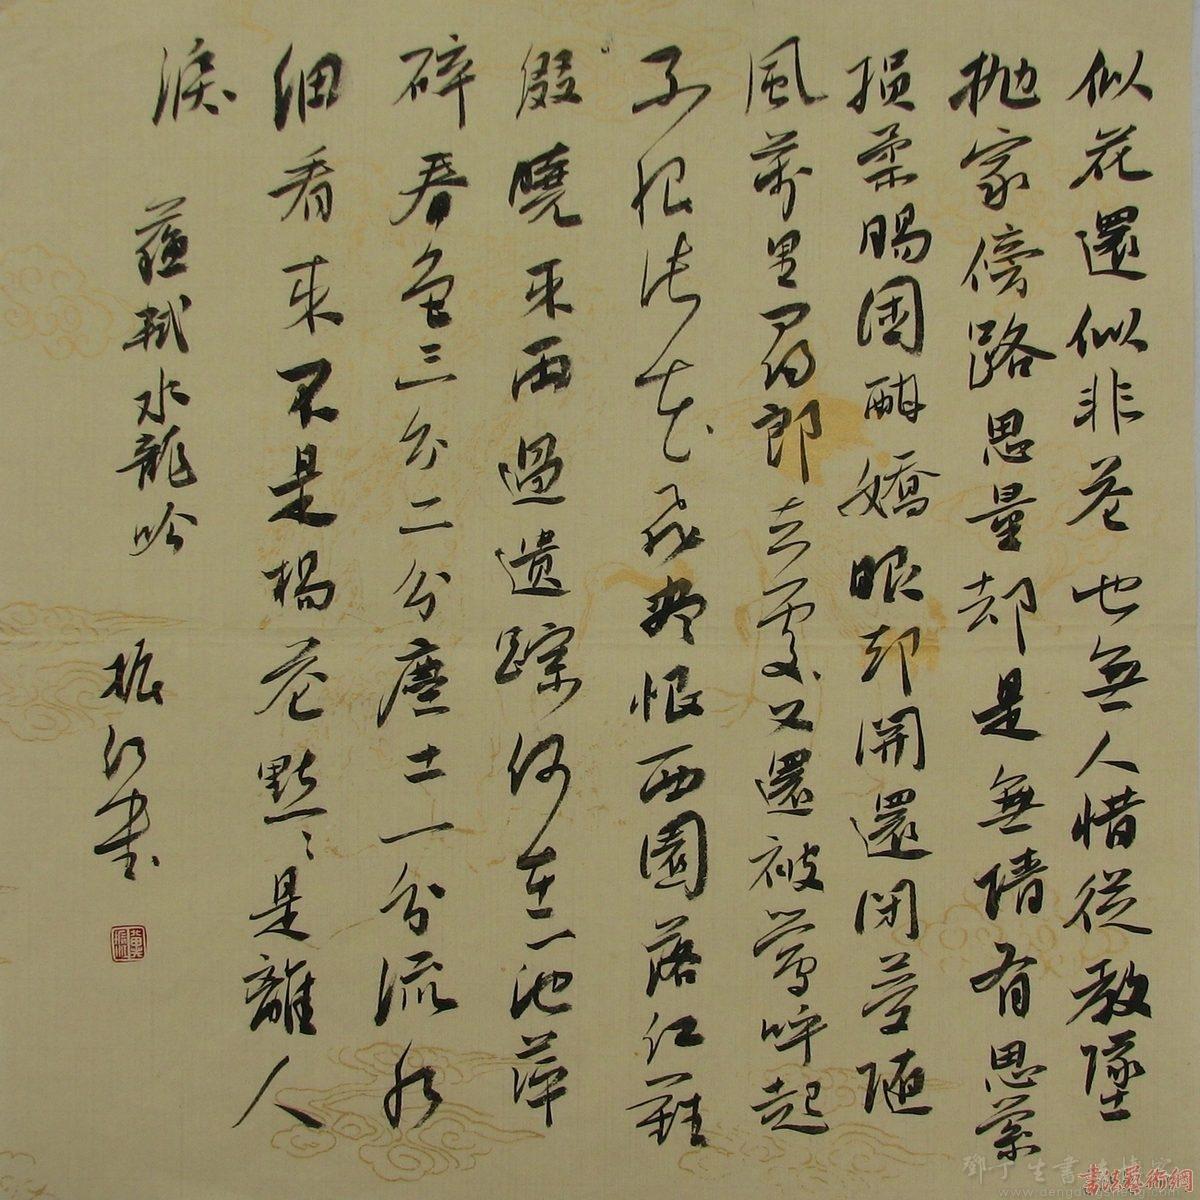 似花還似非花也無人惜從教墜
抛家傍路思量却是無情有思縈
損柔腸困酣嬌眼却開還閉夢隨
風萬里尋郎去處又還被鶯呼起
不恨此花飛盡恨西園落紅難
綴曉來雨過遺踪何在一池萍
碎春色三分二分塵土一分流水
細看來不是楊花點〻是離人
淚
蘇軾水龍吟
振江書
書法藝術網